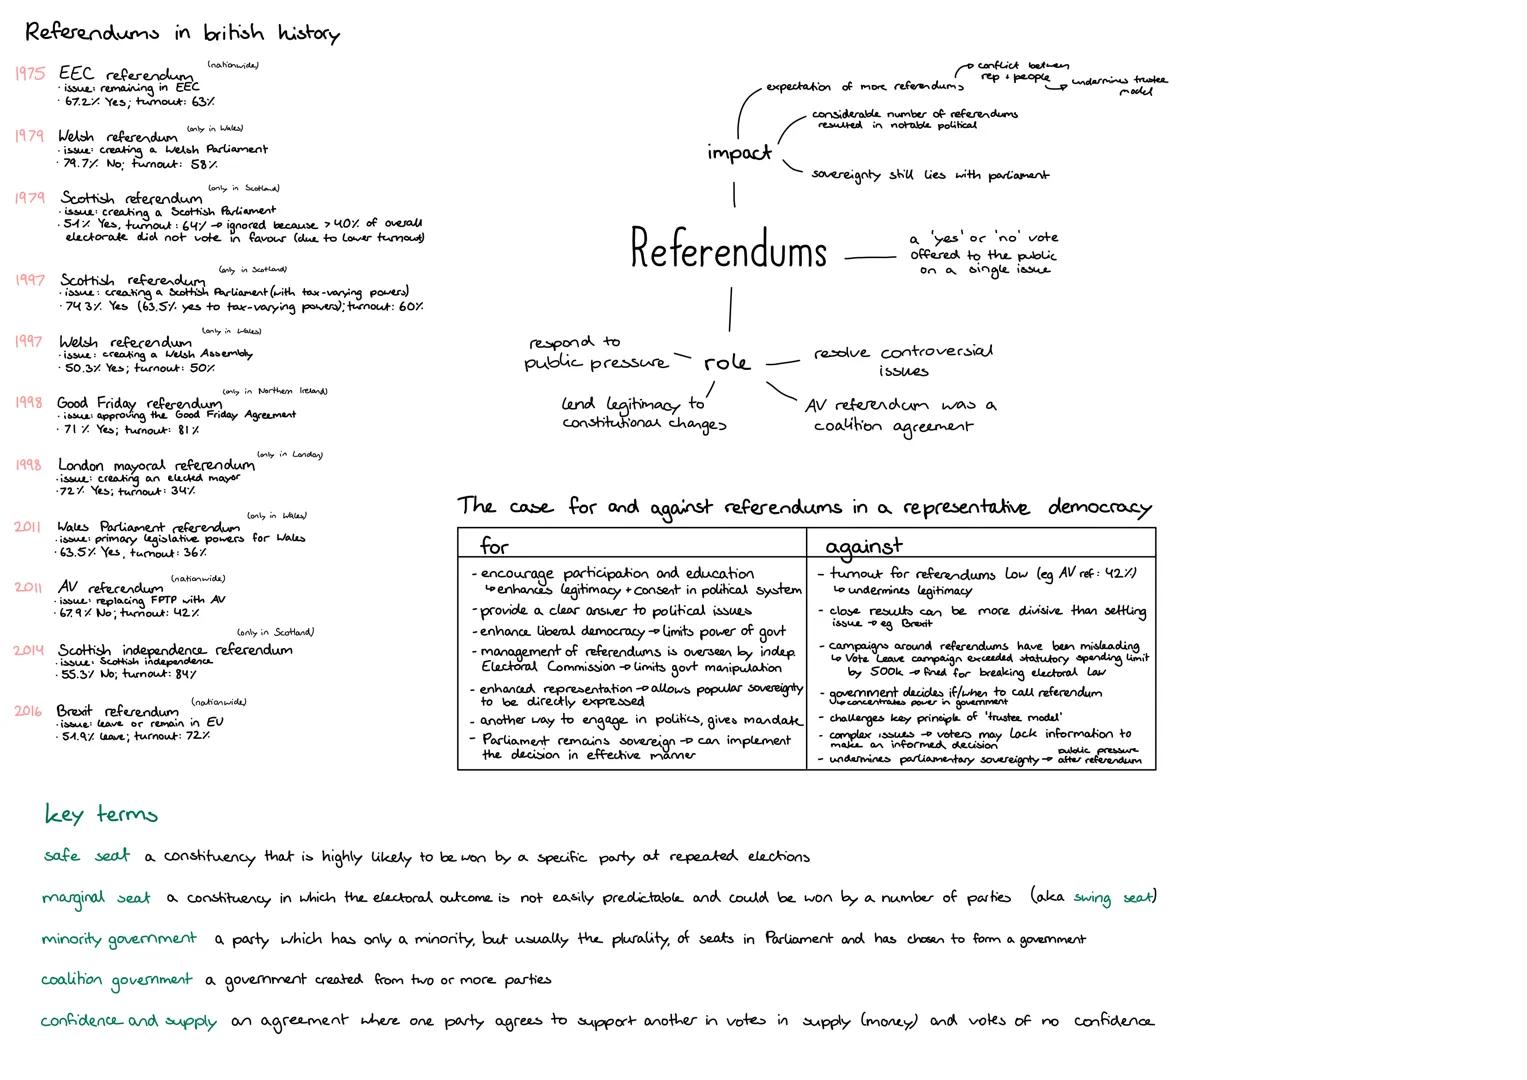 Referendums in british history
1975 EEC referendum (nationwide)
· issue: remaining in EEC
· 67.2% Yes; turnout: 63%
1979 Welsh referendum (only in Wales)
· issue: creating a Welsh Parliament
· 79.7% No; turnout: 58%
1979 Scottish referendum (only in Scotland)
· issue: creating a Scottish Parliament
· 51% Yes, turnout: 64% → ignored because >40% of overall
electorate did not vote in favour (due to lower turnout)
1997 Scottish referendum (only in Scotland)
· issue: creating a Scottish Parliament (with tax-varying powers)
· 74 3% Yes (63.5% yes to tax-varying powers); turnout: 60%
1997 Welsh referendum (only in Wales)
· issue: creating a Welsh Assembly
· 50.3% Yes; turnout: 50%
1998 Good Friday referendum (only in Northern Ireland)
· issue: approving the Good Friday Agreement
· 71% Yes; turnout: 81%
1998 London mayoral referendum (only in London)
· issue: creating an elected mayor
· 72% Yes; turnout: 34%
2011 Wales Parliament referendum (only in Wales)
· issue: primary legislative powers for Wales
· 63.5% Yes, turnout: 36%
2011 AV referendum (nationwide)
· issue: replacing FPTP with AV
· 67.9% No; turnout: 42%
2014 Scottish independence referendum (only in Scotland)
· issue: Scottish independence
· 55.3% No; turnout: 84%
2016 Brexit referendum (nationwide)
· issue: leave or remain in EU
· 51.9% leave; turnout: 72%
expectation of more referendums
→ conflict between
rep + people
→ undermines trustee
model
considerable number of referendums
resulted in notable political
impact
sovereignty still lies with parliament
Referendums
a 'yes' or 'no' vote
offered to the public
on a single issue
respond to
public pressure
role
resolve controversial
issues
lend legitimacy to
constitutional changes
AV referendum was a
coalition agreement
The case for and against referendums in a representative democracy
for
- encourage participation and education
↳ enhances legitimacy + consent in political system
- provide a clear answer to political issues
- enhance liberal democracy → limits power of govt
- management of referendums is overseen by indep
Electoral Commission → limits govt manipulation
- enhanced representation → allows popular sovereignty
to be directly expressed
- another way to engage in politics, gives mandate
- Parliament remains sovereign → can implement
the decision in effective manner
against
- turnout for referendums low (eg AV ref: 42%)
↳ undermines legitimacy
- close results can be more divisive than settling
issue → eg Brexit
- campaigns around referendums have been misleading
↳ Vote Leave campaign exceeded statutory spending limit
by 500k → fined for breaking electoral law
- government decides if/when to call referendum
↳ concentrates power in government
- challenges key principle of 'trustee model'
- complex issues → voters may lack information to
make an informed decision
- undermines parliamentary sovereignty → public pressure
after referendum
key terms
safe seat a constituency that is highly likely to be won by a specific party at repeated elections
marginal seat a constituency in which the electoral outcome is not easily predictable and could be won by a number of parties (aka swing seat)
minority government a party which has only a minority, but usually the plurality, of seats in Parliament and has chosen to form a government
coalition government a government created from two or more parties
confidence and supply an agreement where one party agrees to support another in votes in supply (money) and votes of no confidence